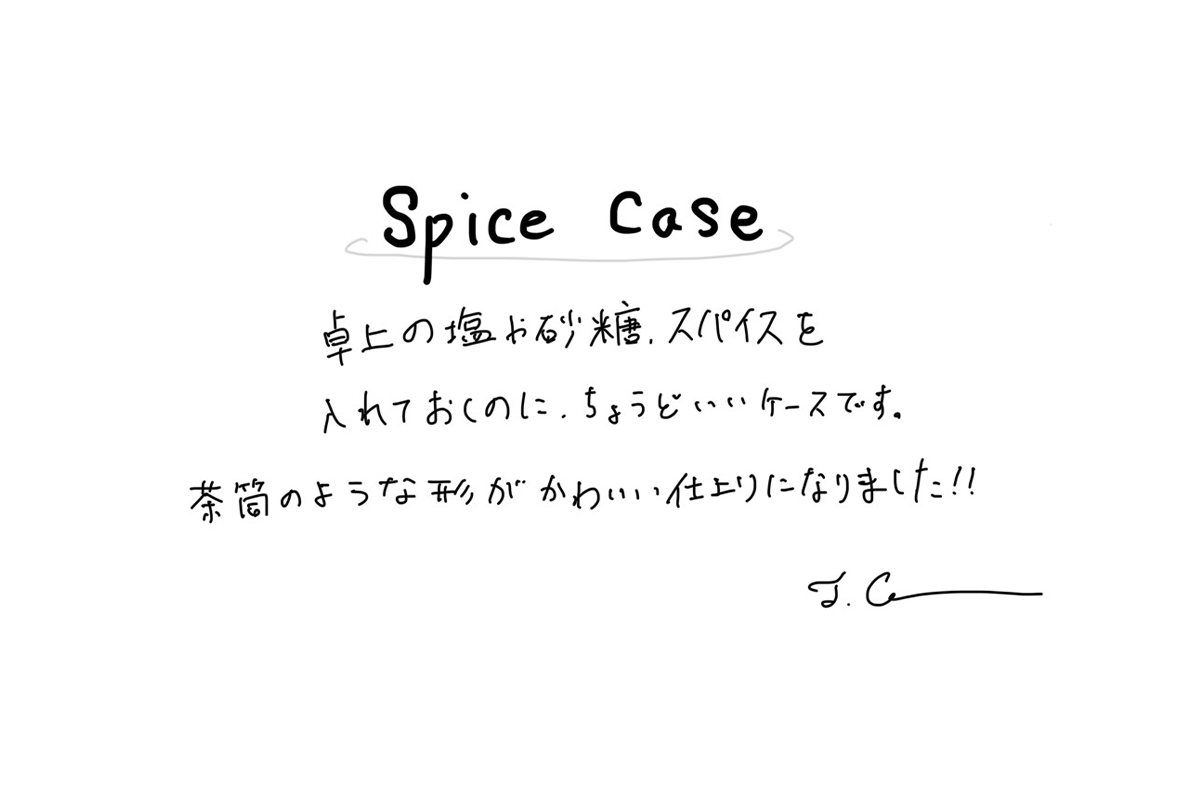 Spice Case
卓上の塩や砂糖、スパイスを
入れておくのに、ちょうどいいケースです。
茶筒のような形がかわいい仕上りになりました!!